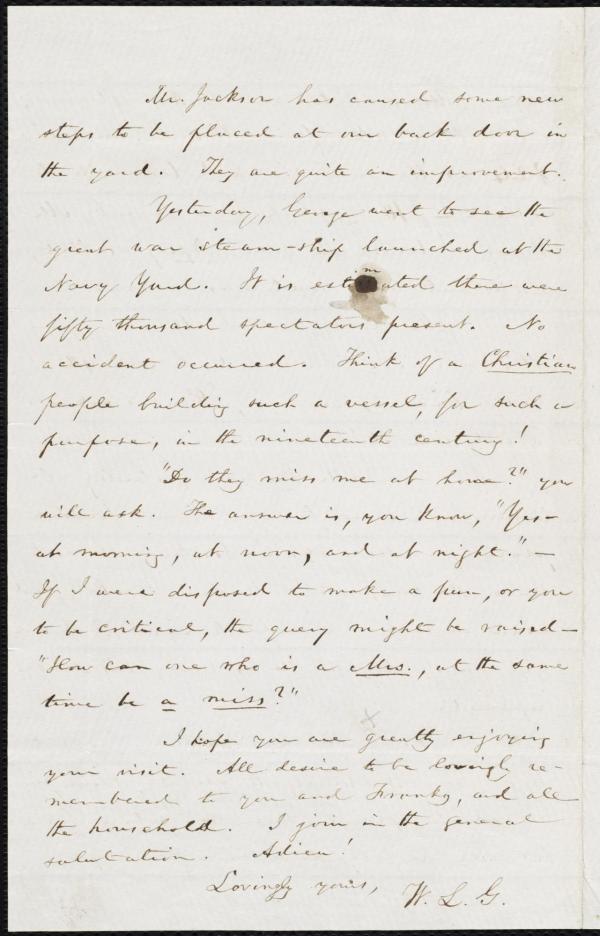 Mr. Jackson has caused some new
steps to be placed at our back door in
the yard. They are quite an improvement.
Yesterday, George went to see the
great war steam-ship launched at the
Navy Yard. It is estimated there were
fifty thousand spectators present. No
accident occurred. Think of a Christian
people building such a vessel, for such a
purpose, in the nineteenth century!
"Do they miss me at home?" you
will ask. The answer is, you know, "Yes—
at morning, at noon, and at night."—
If I were disposed to make a pun, or you
to be critical, the query might be raised—
"How can one who is a Mrs., at the same
time be a miss?"
I hope you are greatly enjoying
your visit. All desire to be lovingly re-
membered to you and Franky, and all
the household. I join in the general
salutation. Adieu!
Lovingly yours, W. L. G.